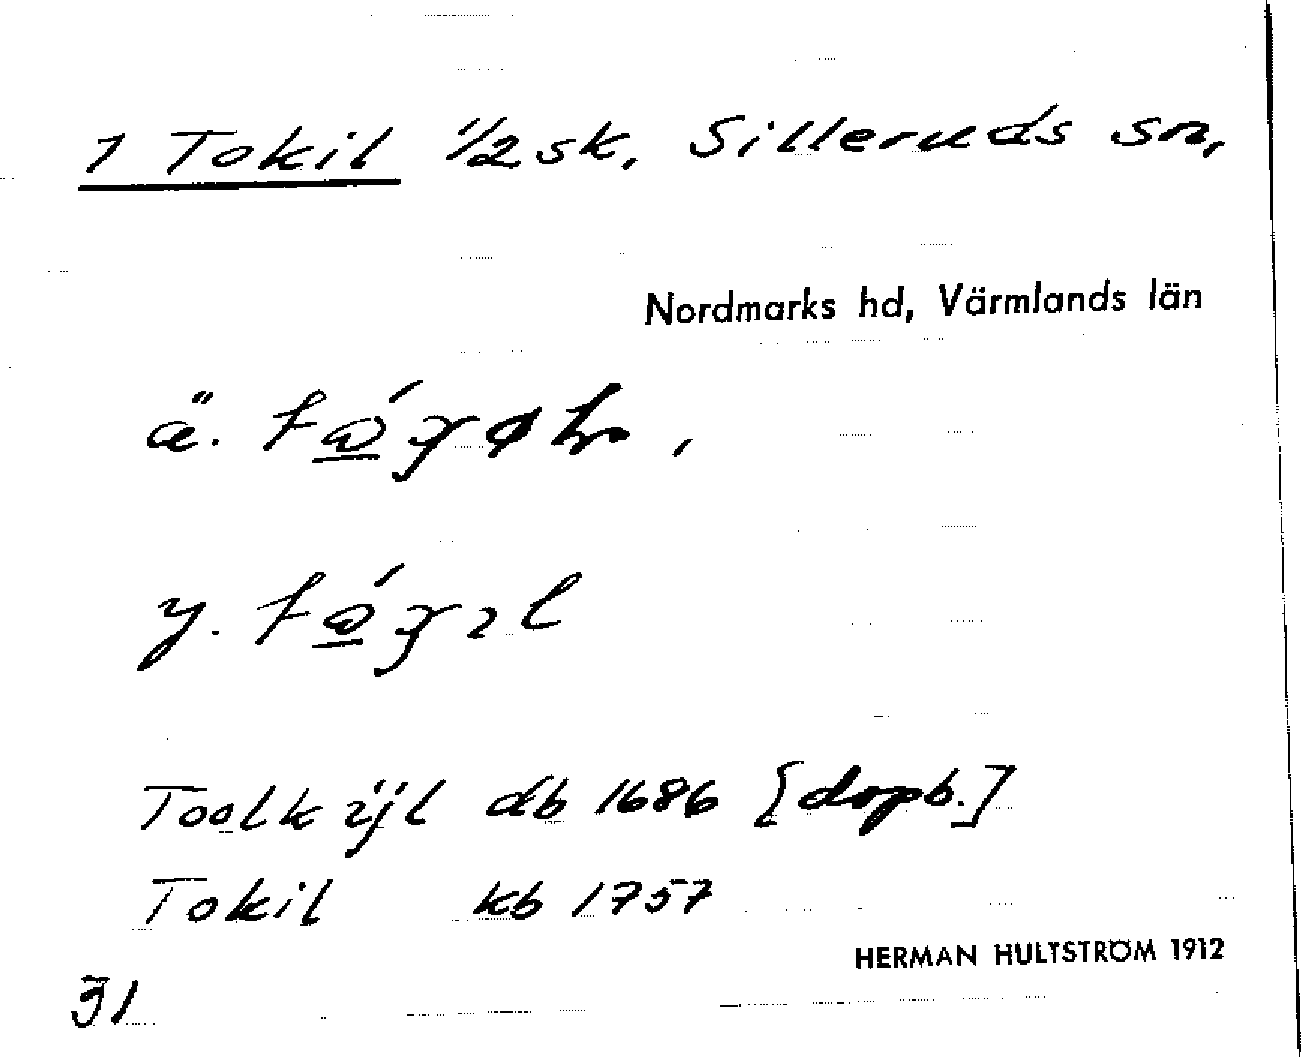 1 Tokil 1/2 sk, Silleruds sn,
Nordmarks hd, Värmlands län
ä.
y.
Toolkijl db 1686 [dopb.]
Tokil kb 1757
HERMAN HULTSTRÖM 1912
31